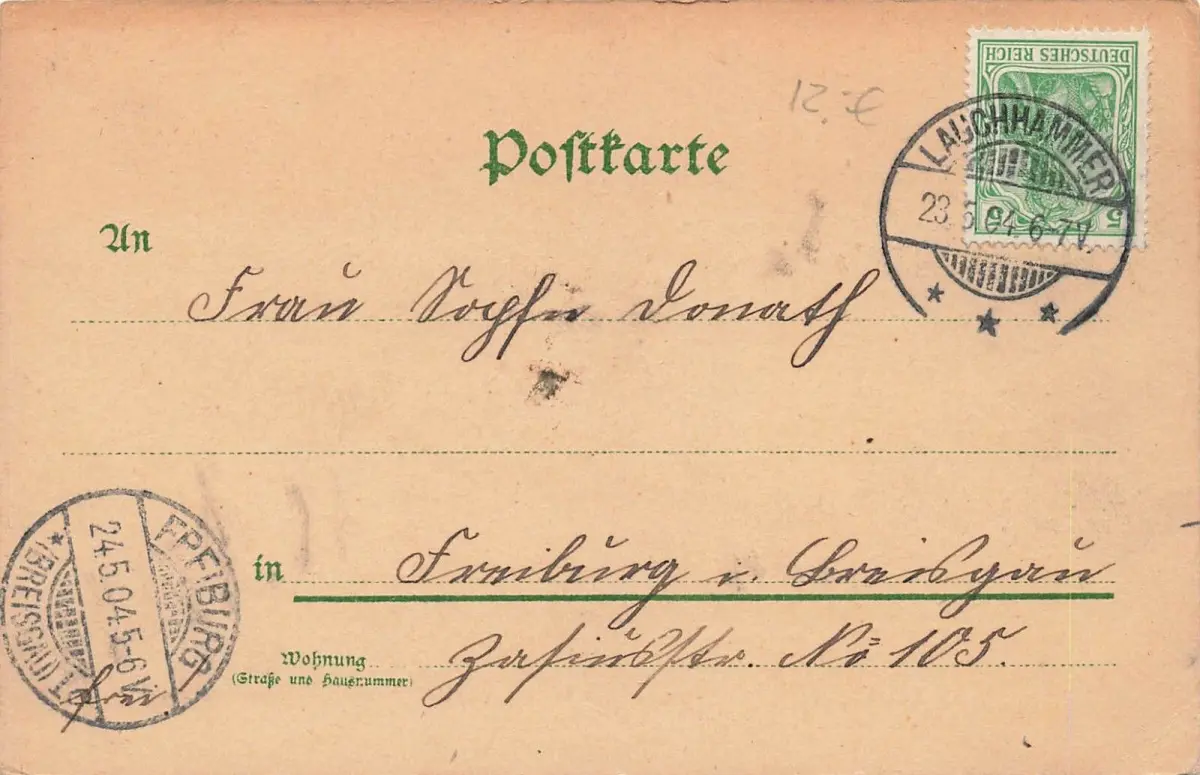 DEUTSCHES REICH
5 5
12.-€
Postkarte
LAUCHHAMMER
23.5.04. 6-7V.
An
Frau Sophie Donath
in Freiburg i. Breisgau
Wohnung
(Straße und Hausnummer)
Zasiusstr. No 105.
FREIBURG
24.5.04.5-6V.
* (BREISGAU) 1
frei.